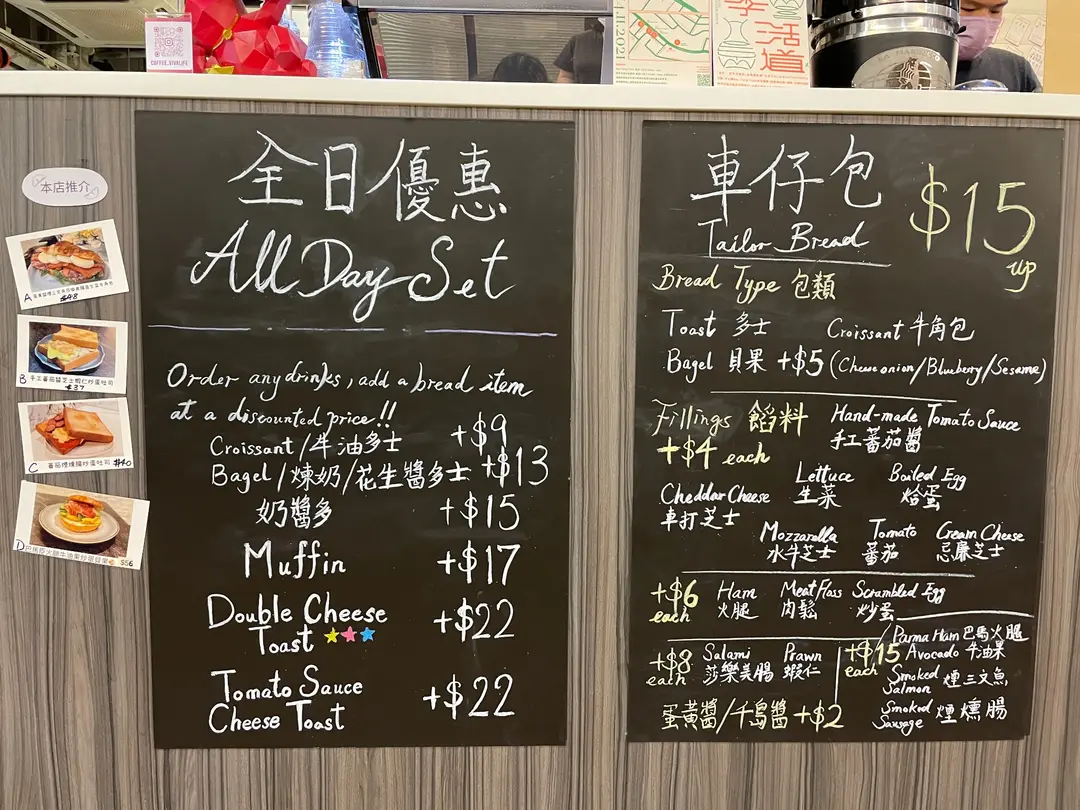 COFFEE.VIVALIFE
李
活
道
本店推介
A
$48
B 手工蕃茄醬芝士蝦仁炒蛋吐司
$37
C 蕃茄煙燻腸炒蛋吐司 $40
D
$56
全日優惠
All Day Set
Order any drinks, add a bread item
at a discounted price!!
Croissant/牛油多士 +$9
Bagel/煉奶/花生醬多士 +$13
奶醬多 +$15
Muffin +$17
Double Cheese
Toast +$22
Tomato Sauce
Cheese Toast +$22
車仔包 $15
Tailor Bread up
Bread Type 包類
Toast 多士 Croissant 牛角包
Bagel 貝果 +$5 (Cheese onion/Blueberry/Sesame)
Fillings 餡料 Hand-made Tomato Sauce
+$4 each 手工蕃茄醬
Cheddar Cheese Lettuce Boiled Egg
車打芝士 生菜 烚蛋
Mozzarella Tomato Cream Cheese
水牛芝士 蕃茄 忌廉芝士
+$6 Ham Meat Floss Scrambled Egg
each 火腿 肉鬆 炒蛋
+$8 Salami Prawn
each 莎樂美腸 蝦仁
+$15 Parma Ham 巴馬火腿
each Avocado 牛油果
Smoked
Salmon 煙三文魚
Smoked
Sausage 煙燻腸
蛋黃醬/千島醬 +$2